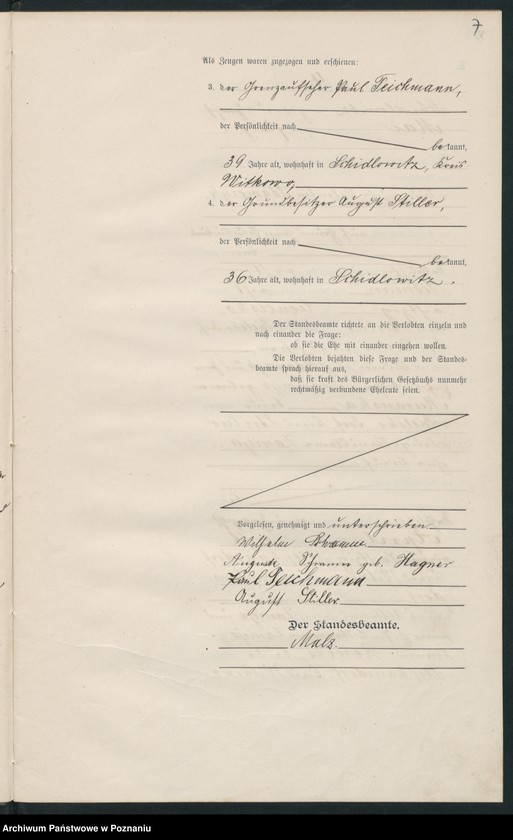 7
Als Zeugen waren zugezogen und erschienen:
3. der Grenzaufseher Paul Teichmann,
der Persönlichkeit nach
bekannt,
39 Jahre alt, wohnhaft in Schidlowitz, Kreis
Witkowo,
4. der Grundbesitzer August Stiller,
der Persönlichkeit nach
bekannt,
36 Jahre alt, wohnhaft in Schidlowitz.
Der Standesbeamte richtete an die Verlobten einzeln und
nach einander die Frage:
ob sie die Ehe mit einander eingehen wollen.
Die Verlobten bejahten diese Frage und der Standes-
beamte sprach hierauf aus,
daß sie kraft des Bürgerlichen Gesetzbuchs nunmehr
rechtmäßig verbundene Eheleute seien.
Vorgelesen, genehmigt und unterschrieben
Wilhelm Schramm
Auguste Schramm geb. Hagner
Paul Teichmann
August Stiller
Der Standesbeamte.
Malz.
Archiwum Państwowe w Poznaniu